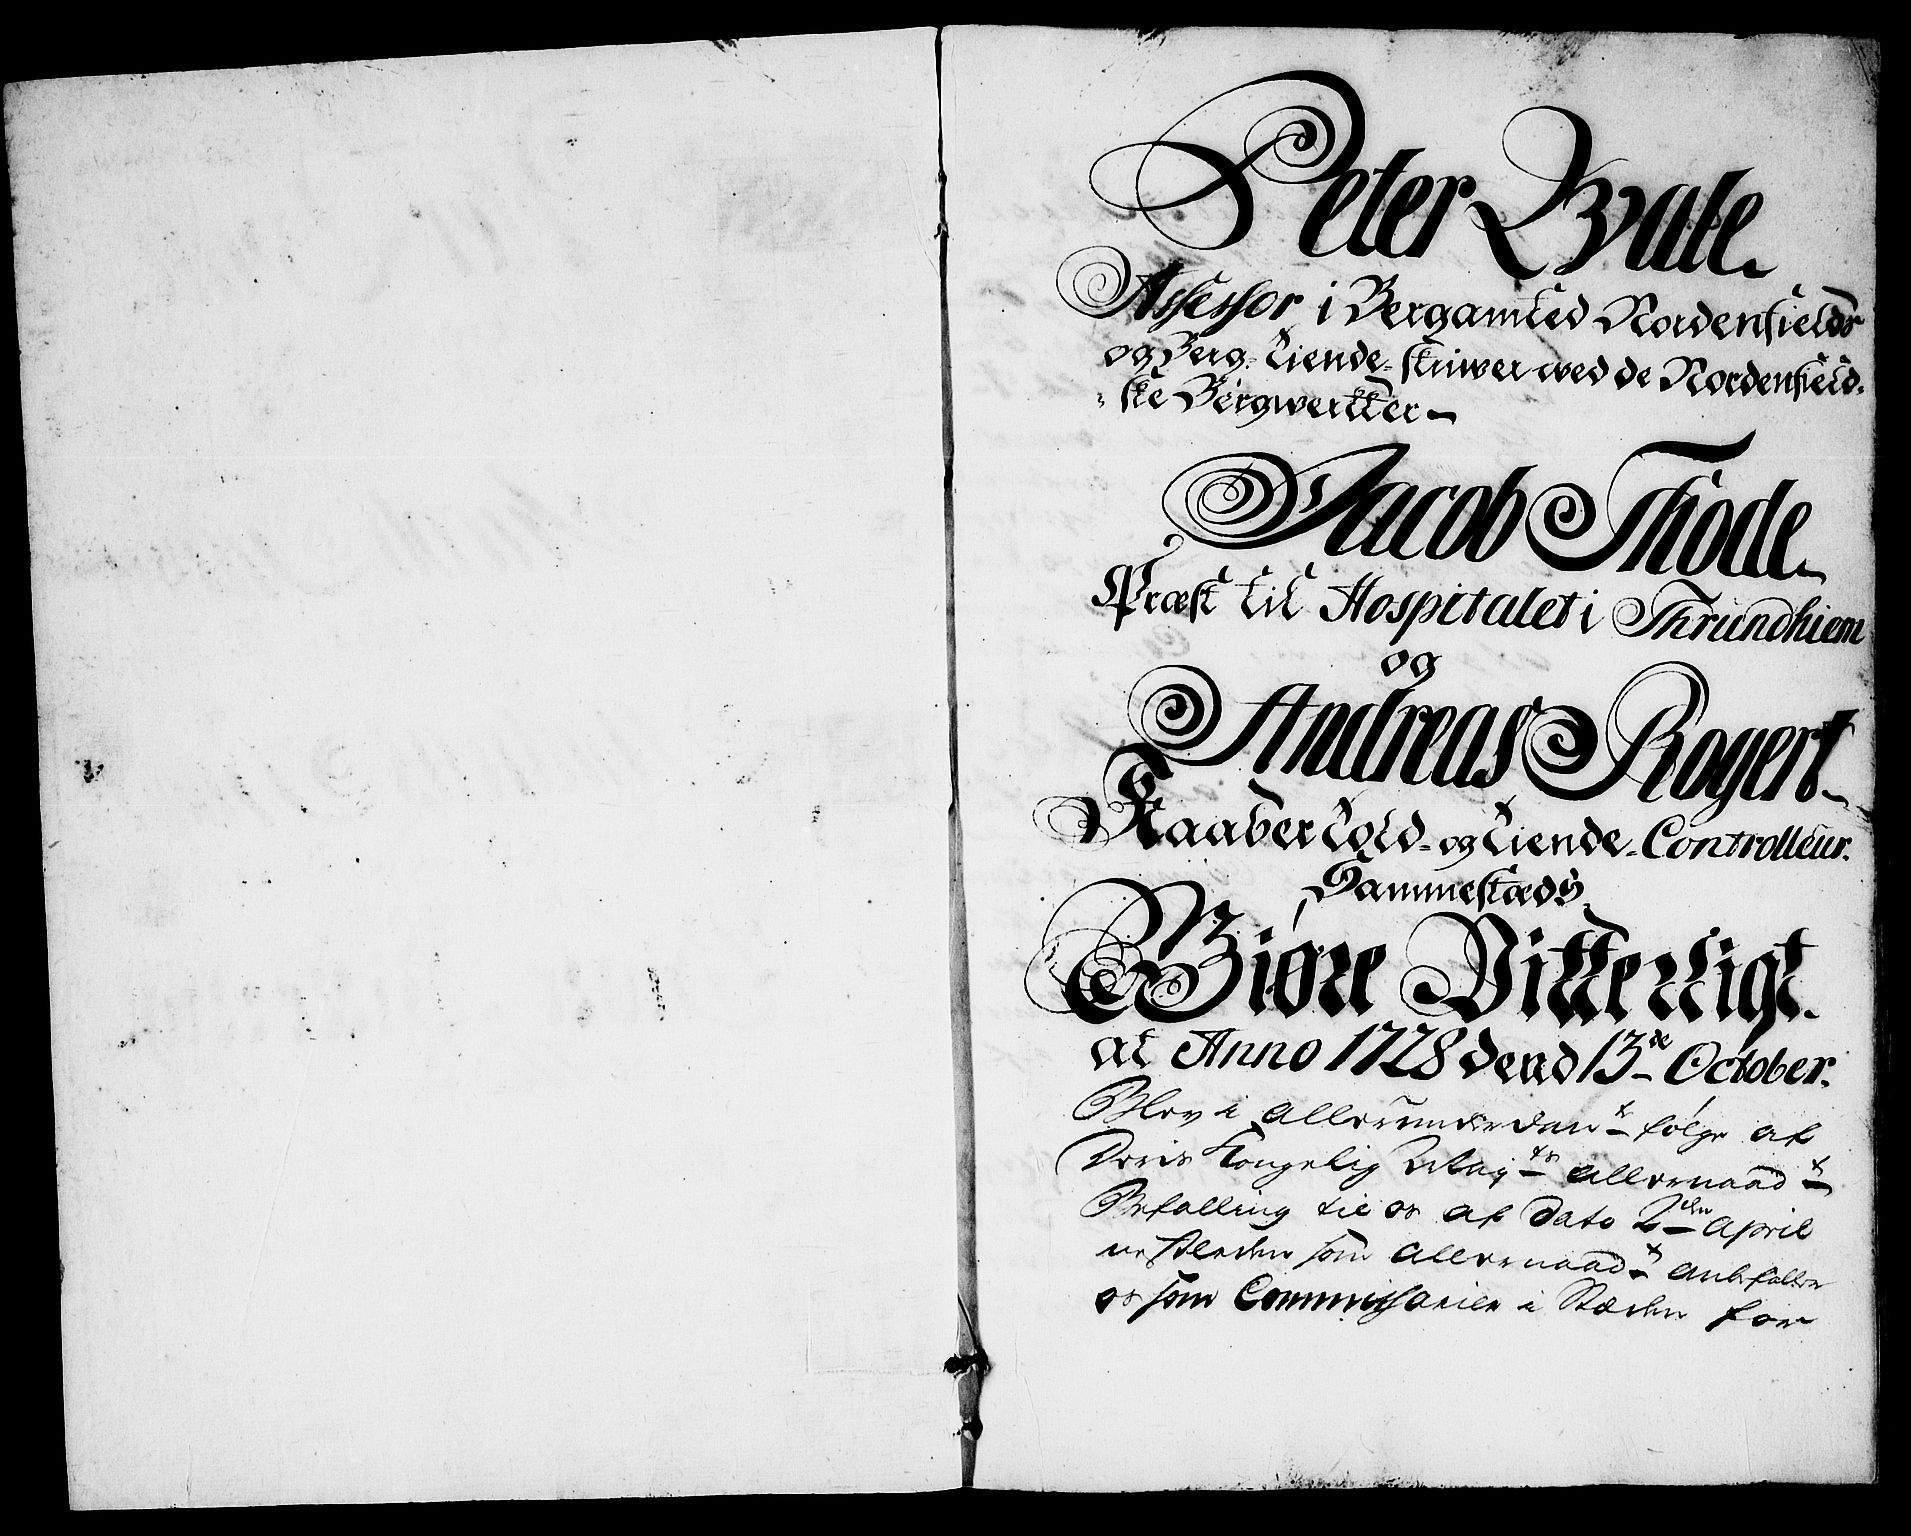 Peter Qvale.
Assessor i Bergamted Nordenfields
og Berg-Tiende-skriwer wed de Nordenfield-
ske Bergwerkker
Jacob Thode
Præst til Hospitalet i Thrundhiem
og
Andreas Rogert
Kaaber Told- og Tiende-Controlleur.
Sammestæds
Giøre Vitterligt
at Anno 1728 dend 13de October.
Blev i allerunderdan:t følge af
Deris Kongelig Maij:ts allernaad:t
Befalling til os af dato 2den April
nestleden som allernaad:t anbefaller
os som Commissarier i Stæden for